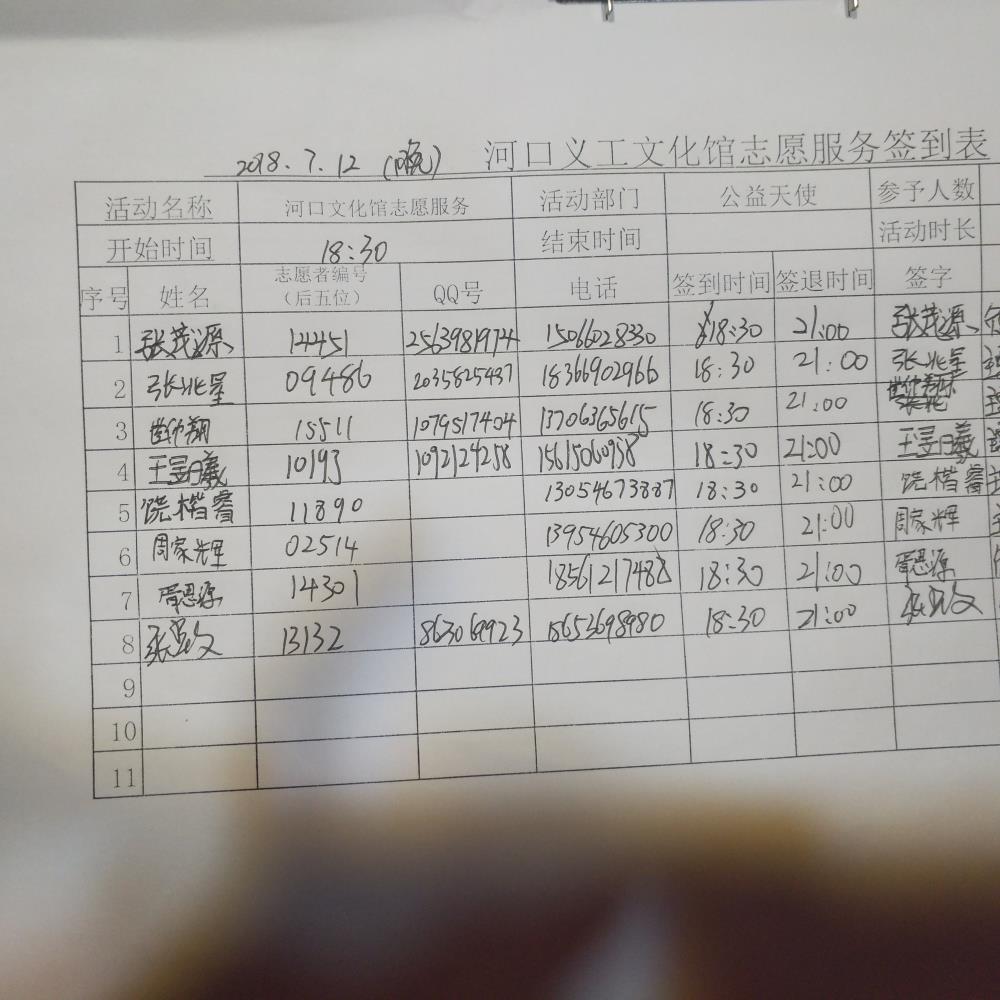 2018.7.12（晚） 河口义工文化馆志愿服务签到表
活动名称 河口文化馆志愿服务 活动部门 公益天使 参予人数
开始时间 18:30 结束时间 活动时长
序号 姓名 志愿者编号（后五位） QQ号 电话 签到时间 签退时间 签字
1 张茂源 12451 2563981974 15066028330 18:30 21:00 张茂源
2 张兆星 09486 2035825437 18366902966 18:30 21:00 张兆星
3 15511 1079517404 13706365615 18:30 21:00
4 王昱曦 10193 1092124258 15615060938 18:30 21:00 王昱曦
5 饶楷睿 11890 13054673887 18:30 21:00 饶楷睿
6 周家辉 02514 13954605300 18:30 21:00 周家辉
7 胥恩源 14301 18561217488 18:30 21:00 胥恩源
8 13132 863069923 18653698980 18:30 21:00
9
10
11